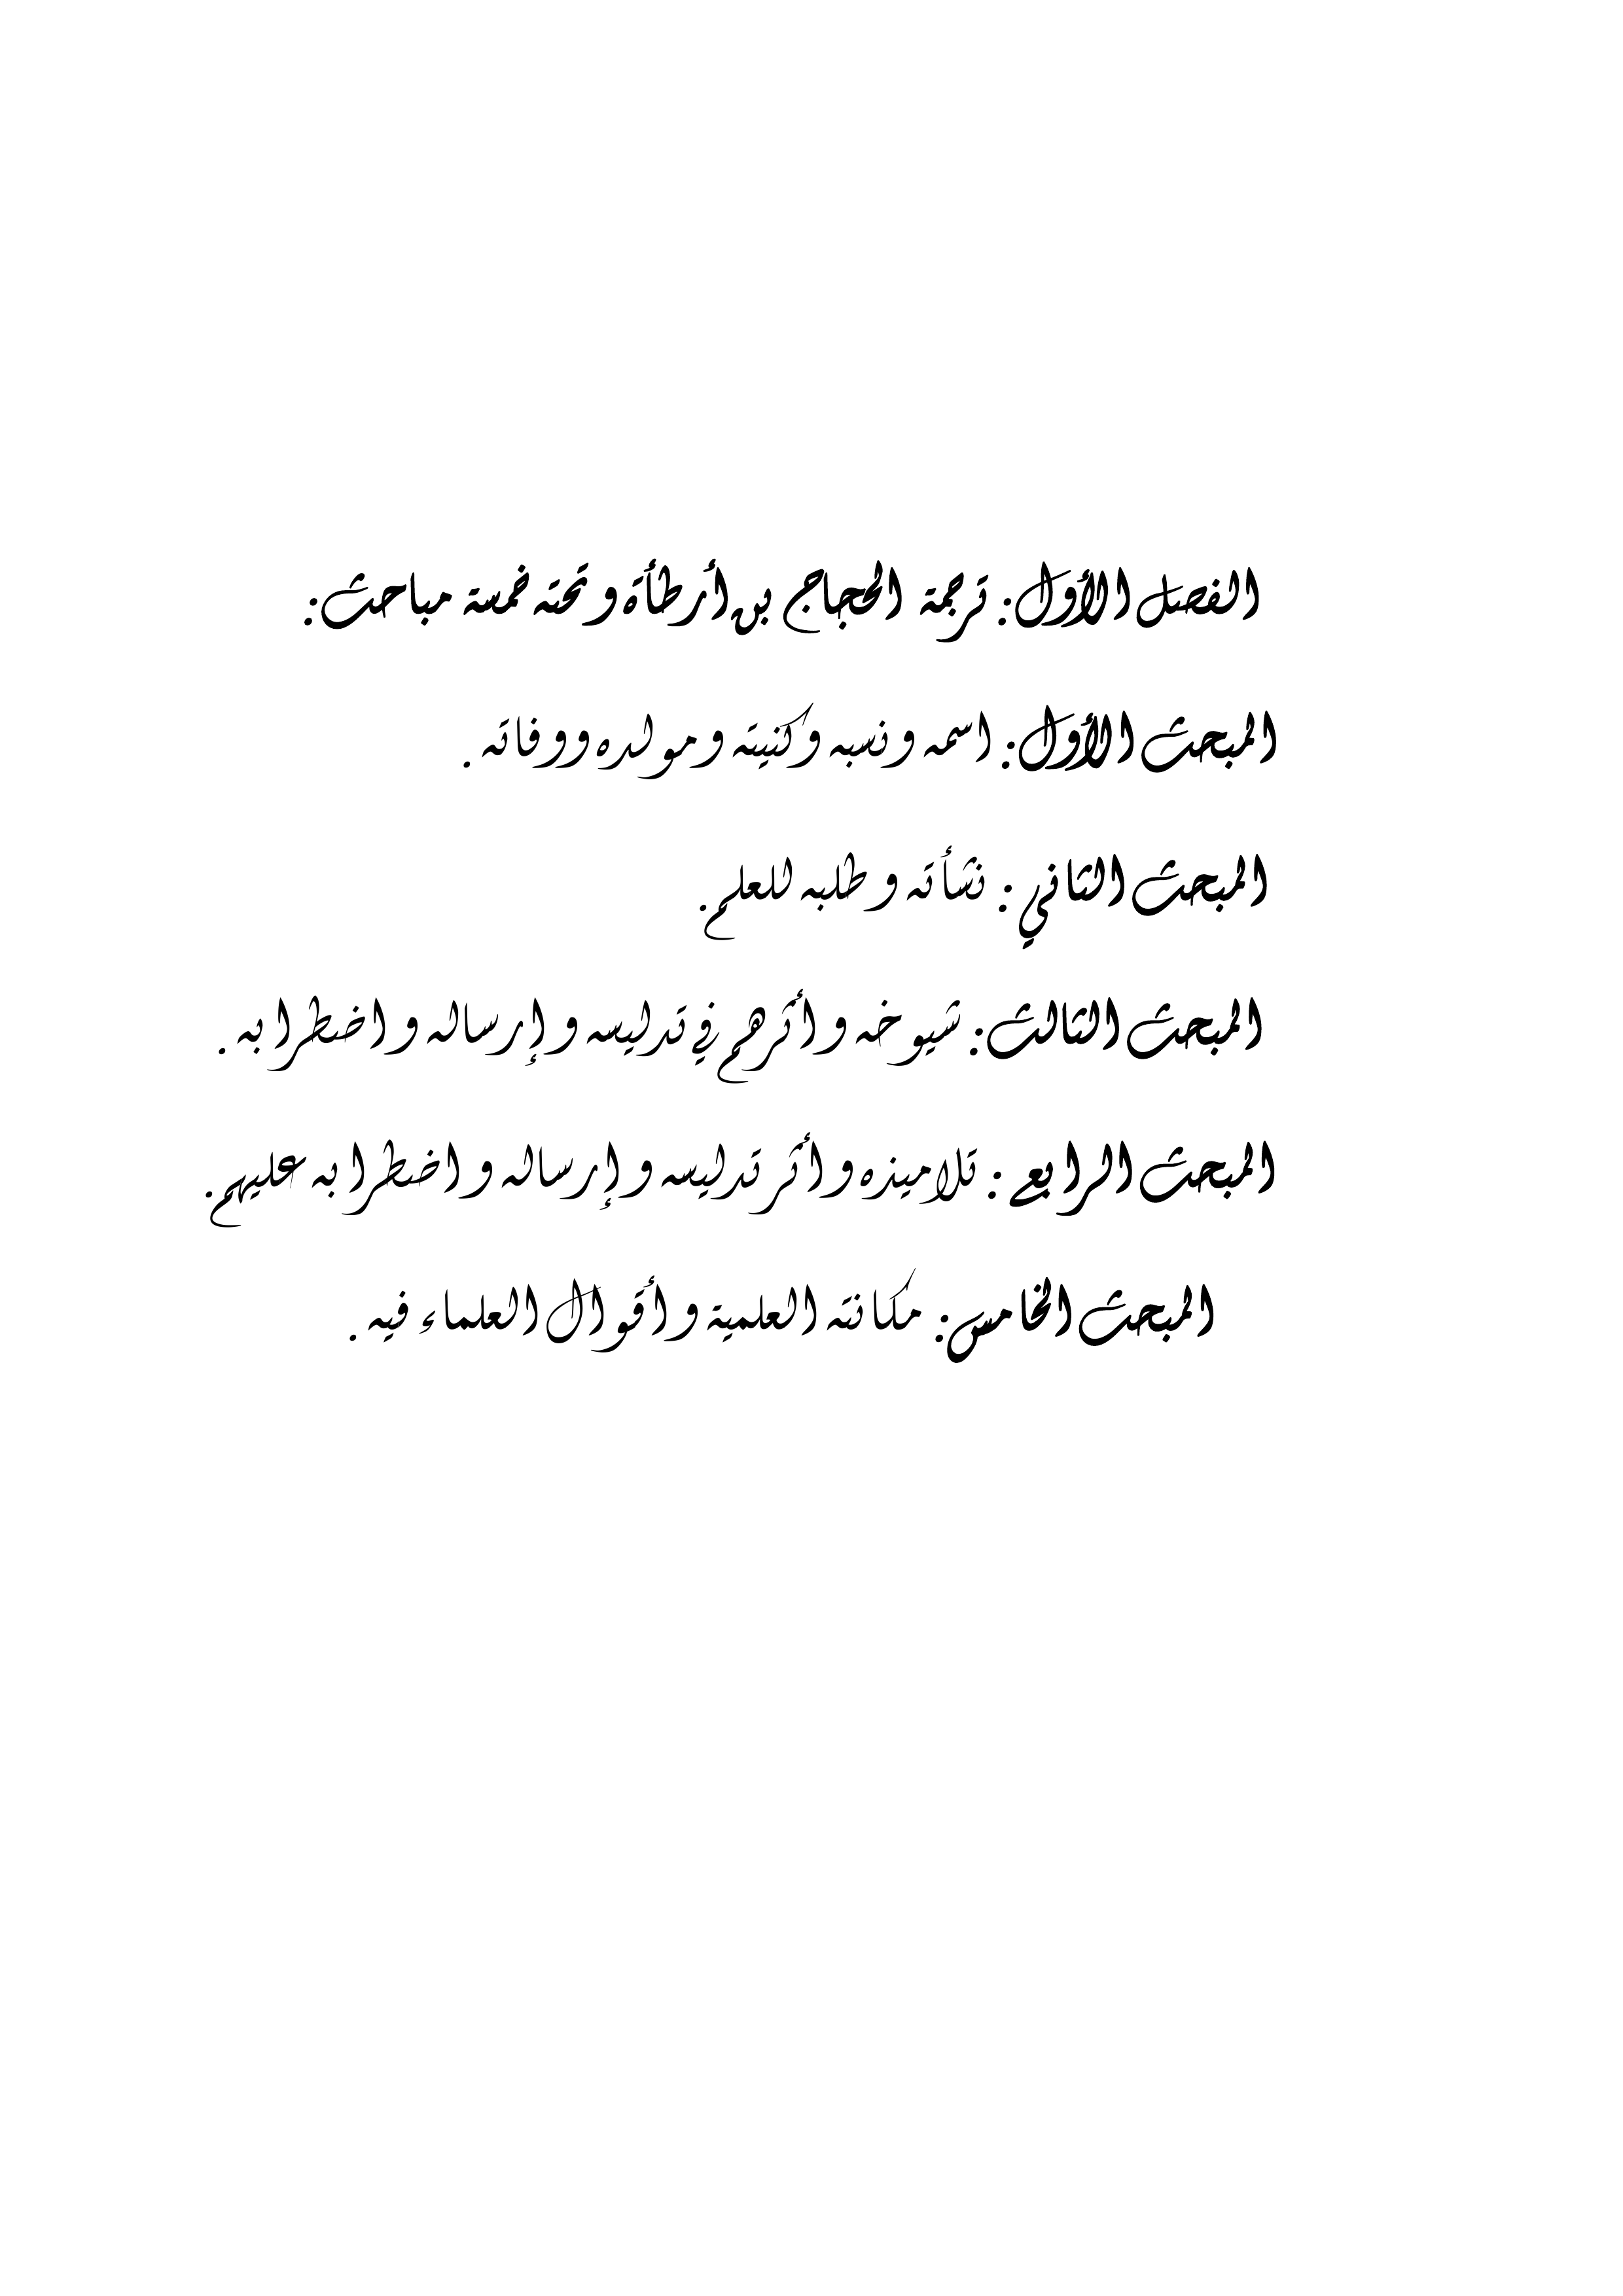 الفصل الأول: ترجمة الحجاج بن أرطأة وتحته خمسة مباحث:
المبحث الأول: اسمه ونسبه وكنيته ومولده ووفاته.
المبحث الثاني: نشأته وطلبه للعلم.
المبحث الثالث: شيوخه وأثرهم في تدليسه وإرساله واضطرابه.
المبحث الرابع: تلاميذه وأثر تدليسه وإرساله واضطرابه عليهم.
المبحث الخامس: مكانته العلمية وأقوال العلماء فيه.